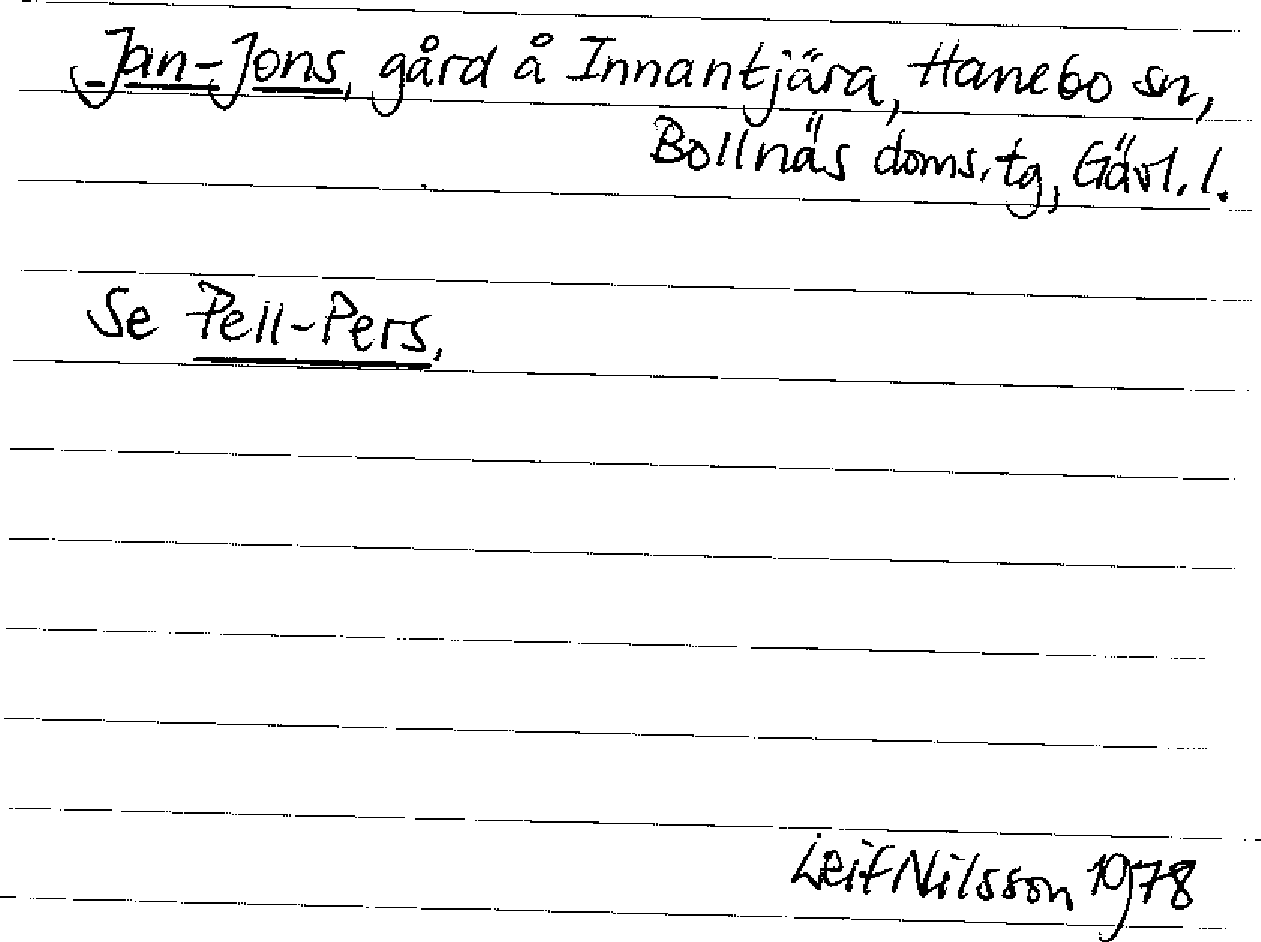 Jan-Jons, gård å Innantjära, Hanebo sn,
Bollnäs doms.tg, Gävl. l.
Se Pell-Pers.
Leif Nilsson 1978